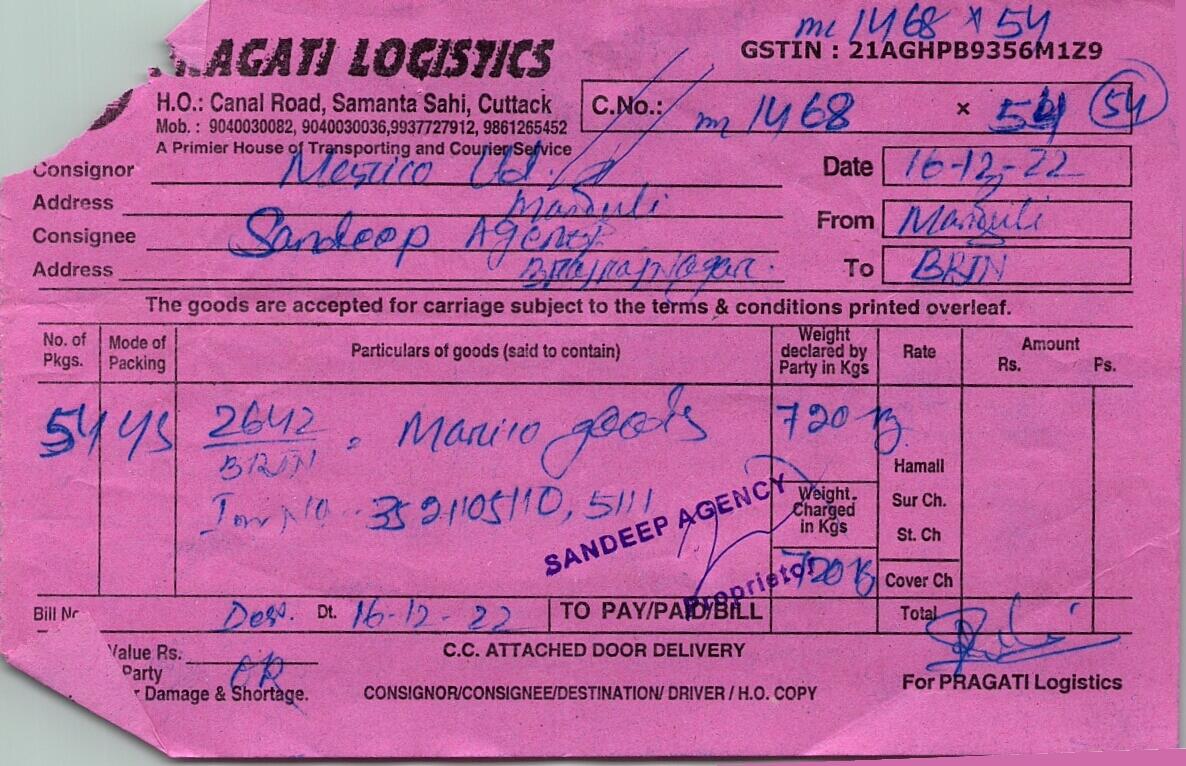 mc 1468 x 54
PRAGATI LOGISTICS
GSTIN : 21AGHPB9356M1Z9
H.O.: Canal Road, Samanta Sahi, Cuttack
C.No.: m 1468 x 54 54
Mob. : 9040030082, 9040030036,9937727912, 9861265452
A Primier House of Transporting and Courier Service
Consignor Ltd. Date 16-12-22
Address Manguli
Consignee Sandeep Agency From Manguli
Address Brajrajnagar. To BRJN
The goods are accepted for carriage subject to the terms & conditions printed overleaf.
No. of Pkgs. Mode of Packing Particulars of goods (said to contain) Weight declared by Party in Kgs Rate Amount Rs. Ps.
54 2642 Marico goods 720
BRJN
Hamali
Inv No 3521105110, 5111
Weight Charged in Kgs
Sur Ch.
SANDEEP AGENCY
St. Ch
720
Proprietor
Cover Ch
Bill Dt. 16-12-22 TO PAY/PAID/BILL Total
Value Rs. C.C. ATTACHED DOOR DELIVERY
Party OR
Damage & Shortage. CONSIGNOR/CONSIGNEE/DESTINATION/ DRIVER / H.O. COPY For PRAGATI Logistics